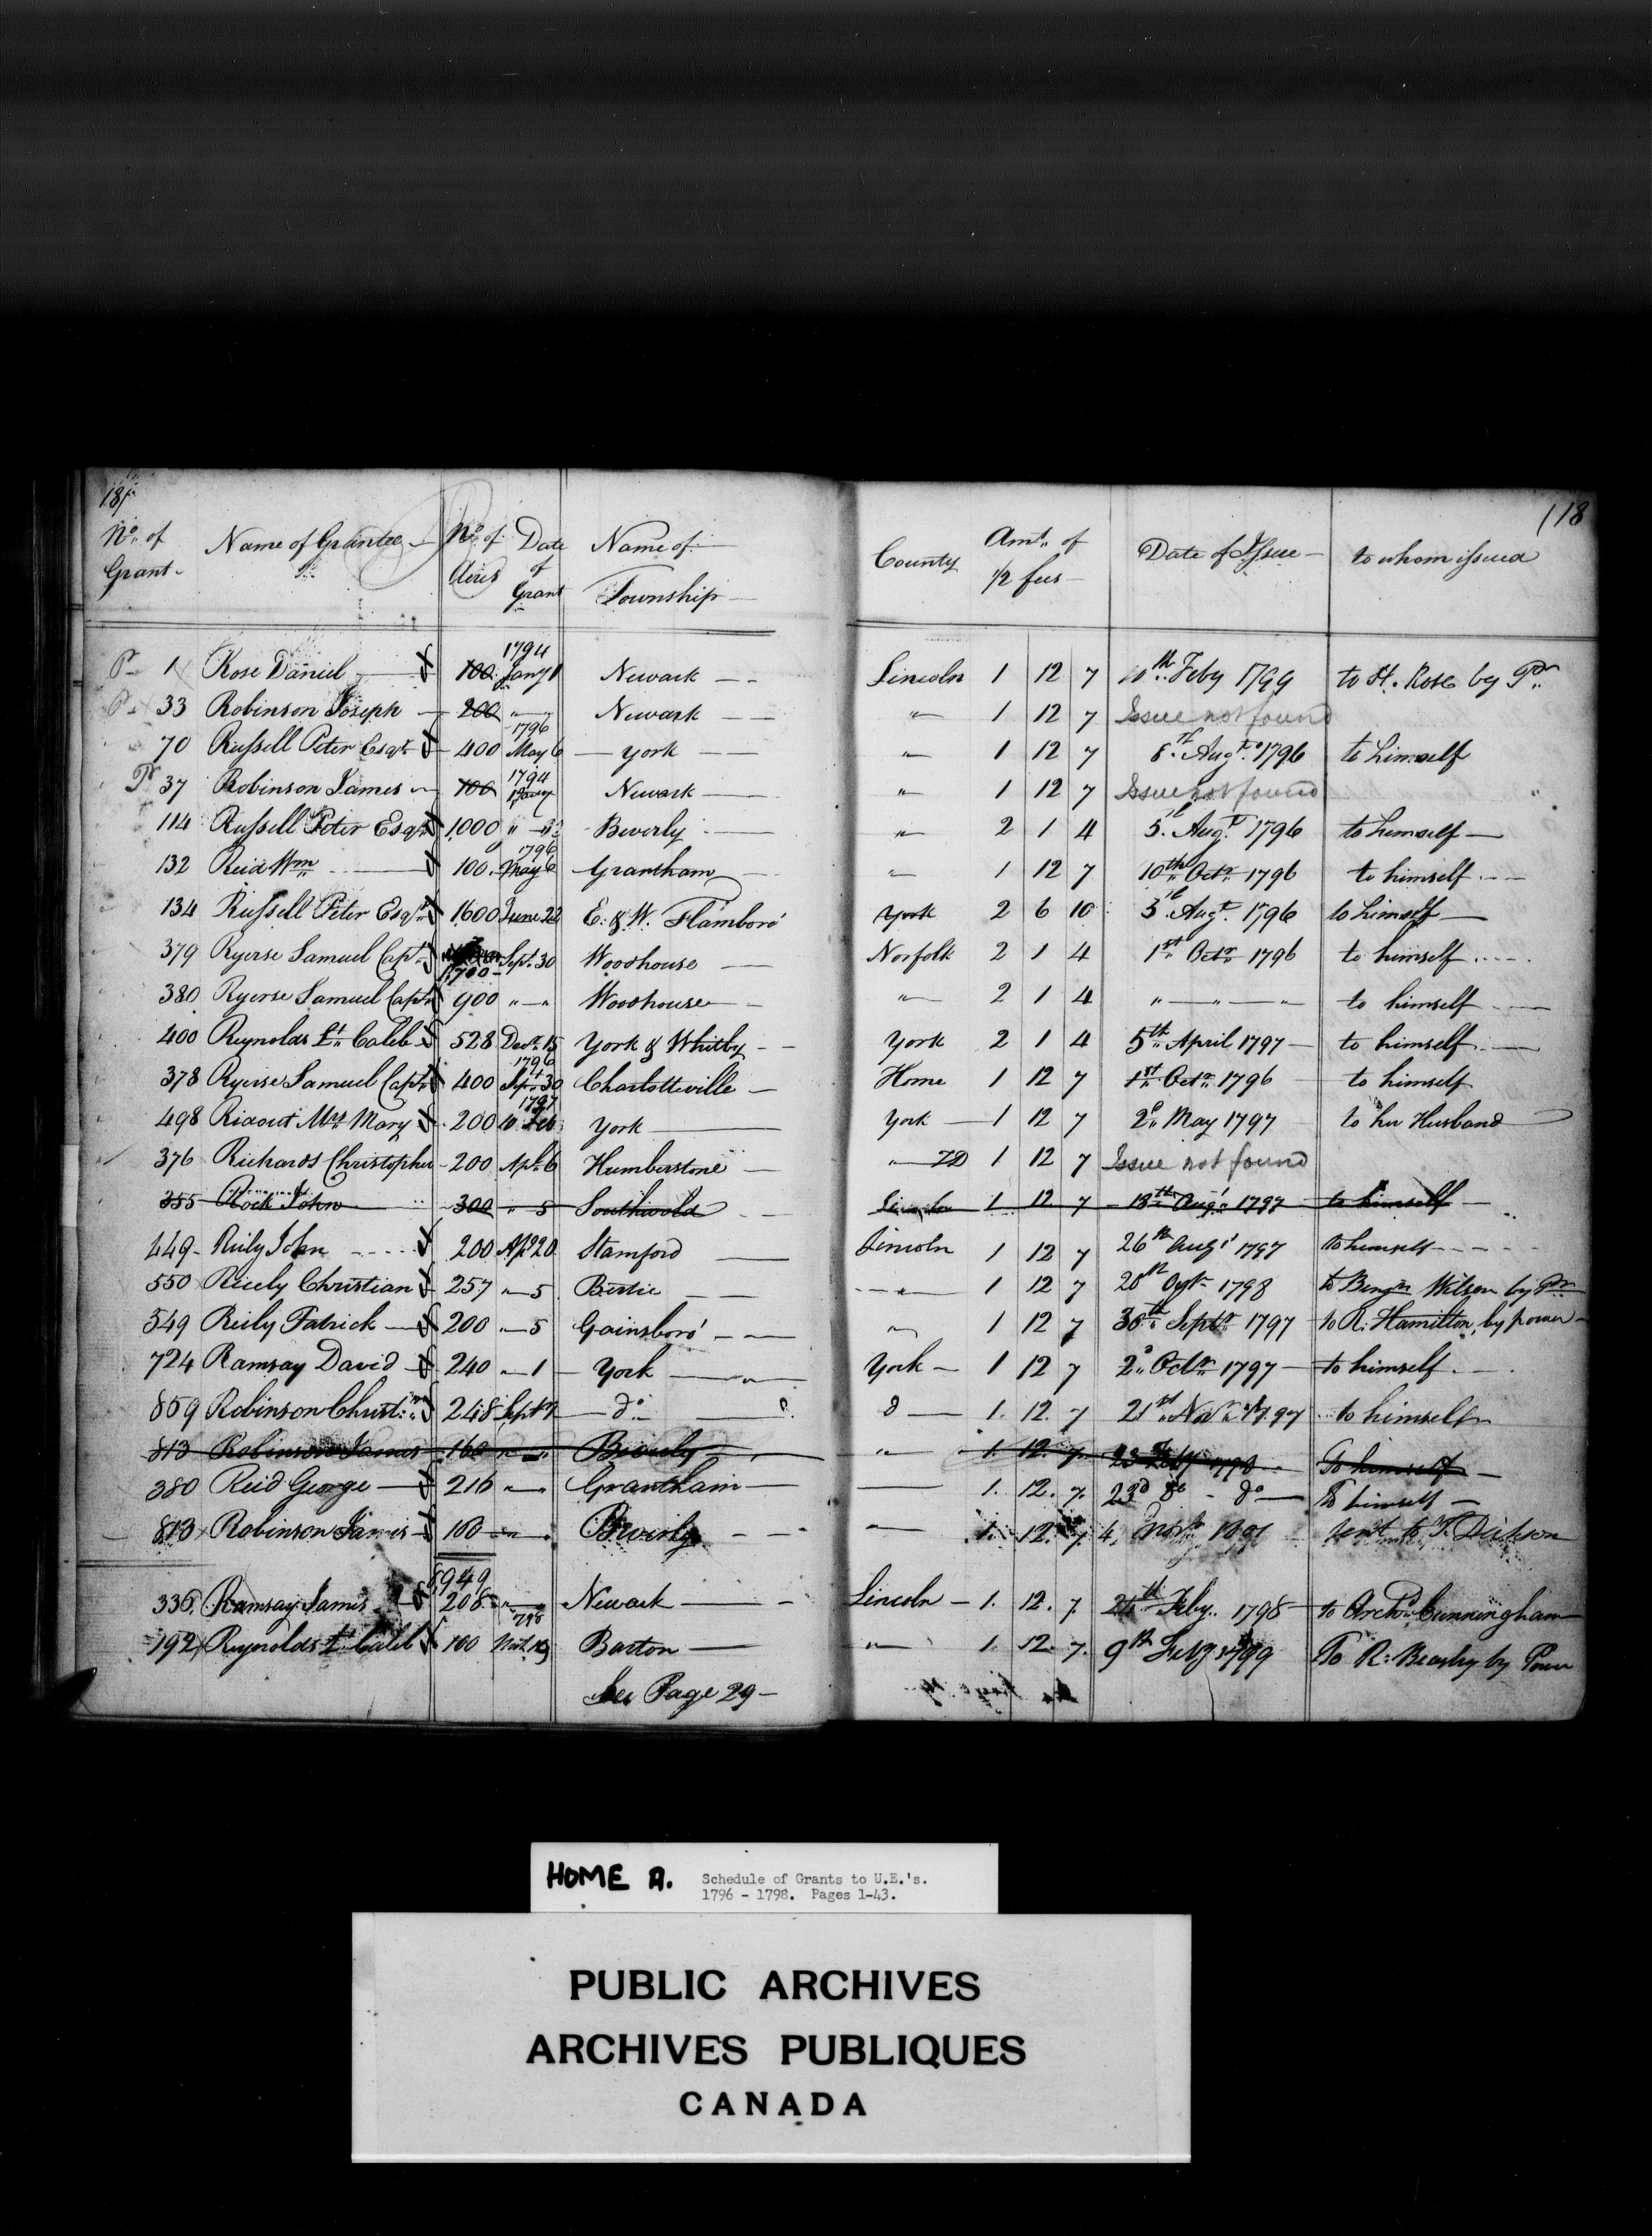 18
118
No. of Name of Grantee No. of Date Name of County Amt. of Date of Issue to whom issued
Grant Acres of Grant Township 1/2 fees
1794
P 1 Rose Daniel 100 Jany 1 Newark Lincoln 1 12 7 Feby 1799 to H. Rose by Pr.
P 33 Robinson Joseph 200 " Newark " 1 12 7 Issue not found
1796
70 Russell Peter Esqr. 400 May 6 York " 1 12 7 Augt. 1796 to himself
1794
Pr 37 Robinson James 100 Newark " 1 12 7 Issue not found
114 Russell Peter Esqr. 1000 " " Beverly " 2 1 4 5. Augt. 1796 to himself
1796
132 Reid Wm. 100 May 6 Grantham " 1 12 7 10th Octr. 1796 to himself
134 Russell Peter Esqr. 1600 June 22 E. & W. Flamboro' York 2 6 10 Augt. 1796 to himself
379 Ryerse Samuel Capt. 1700 Sept. 30 Woodhouse Norfolk 2 1 4 1st Octr. 1796 to himself
380 Ryerse Samuel Capt. 900 " " Woodhouse " 2 1 4 " " " to himself
400 Reynolds Lt. Caleb 528 Decr. 15 York & Whitby York 2 1 4 5th April 1797 to himself
1796
378 Ryerse Samuel Capt. 400 Sept. 30 Charlotteville Home 1 12 7 1st Octr. 1796 to himself
1797
498 Ridout Mrs Mary 200 10 Feb York York 1 12 7 2d May 1797 to her Husband
376 Richards Christopher 200 Apl. 6 Humberstone " 1 12 7 Issue not found
355 Rock John 300 " 5 Southwold Lincoln 1 12 7 18th Augt. 1797 to himself
449 Rily John 200 Apl 20 Stamford Lincoln 1 12 7 26th Augt 1797 to himself
550 Ricely Christian 257 " 5 Bertie " 1 12 7 28th 1798 to Benjn. Wilson by Pr.
549 Reily Patrick 200 " 5 Gainsboro' " 1 12 7 30th Septr. 1797 to R. Hamilton, by power
724 Ramsay David 240 " 1 York York 1 12 7 2d Octr. 1797 to himself
859 Robinson Christr. 248 Sept do do 1. 12. 7 21st Novr. 1797 to himself
813 Robinson James 160 " " Beverly " 1. 12. 7. 1798 To himself
380 Reid George 216 " " Grantham 1. 12. 7. 23d do do To himself
813 Robinson James 160 Beverly 1. 12. 7. 4, Novr. sent to T. Dickson
8949
336 Ramsay James 208 " Newark Lincoln 1. 12. 7. 24th Feby. 1798 to Archd. Cunningham
798
192 Reynolds Lt Caleb 100 Barton " 1. 12. 7. 9th Feby 1799 To R. Beasley by Power
See Page 29
HOME A. Schedule of Grants to U.E.'s.
1796 - 1798. Pages 1-43.
PUBLIC ARCHIVES
ARCHIVES PUBLIQUES
CANADA